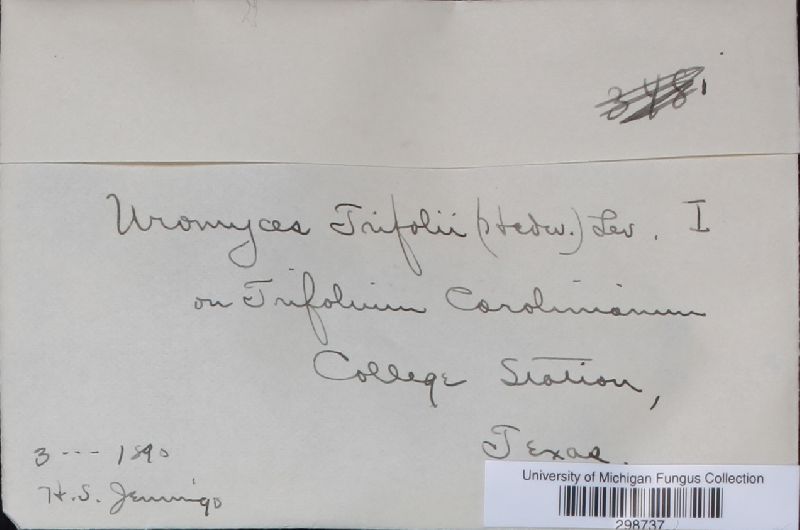 348
Uromyces Trifolii (Hedw.) Lev. I
on Trifolium Carolinianum
College Station,
Texas.
3 --- 1890
H. S. Jennings
University of Michigan Fungus Collection
298737